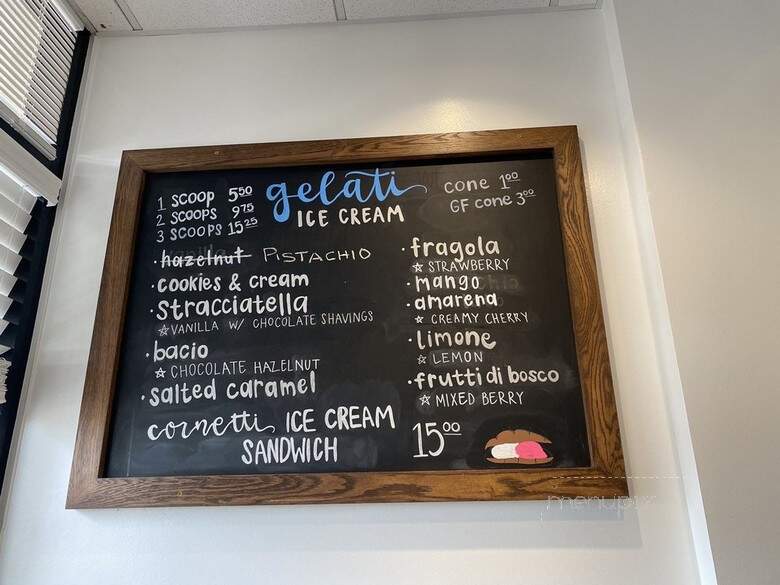 gelati
ICE CREAM
1 SCOOP 5.50
2 SCOOPS 9.75
3 SCOOPS 15.25
cone 1.00
GF cone 3.00
· hazelnut PISTACHIO
· cookies & cream
· stracciatella
☆ VANILLA W/ CHOCOLATE SHAVINGS
· bacio
☆ CHOCOLATE HAZELNUT
· salted caramel
· fragola
☆ STRAWBERRY
· mango
· amarena
☆ CREAMY CHERRY
· limone
☆ LEMON
· frutti di bosco
☆ MIXED BERRY
cornetti ICE CREAM
SANDWICH
15.00
menupix